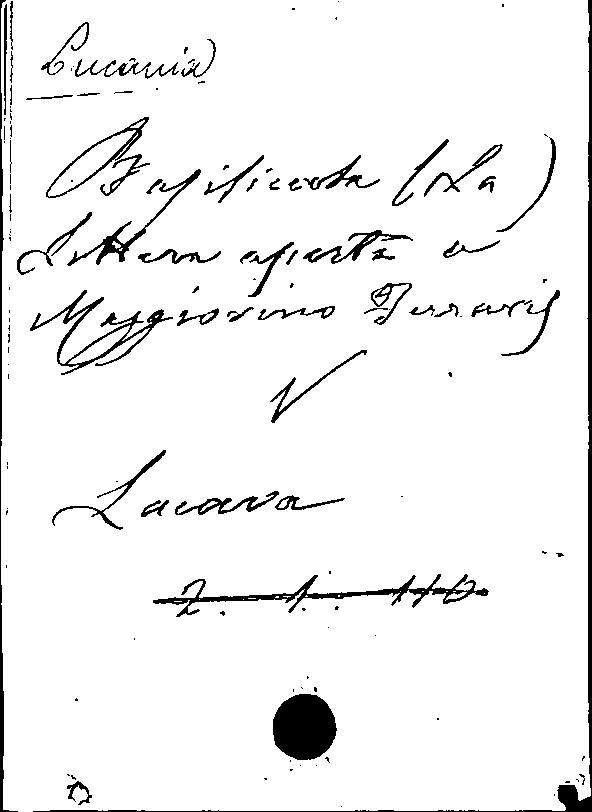 Lucania
Basilicata (La)
Lettera aperta a
Maggiorino Ferraris
V
Lacava
2. 1. 110